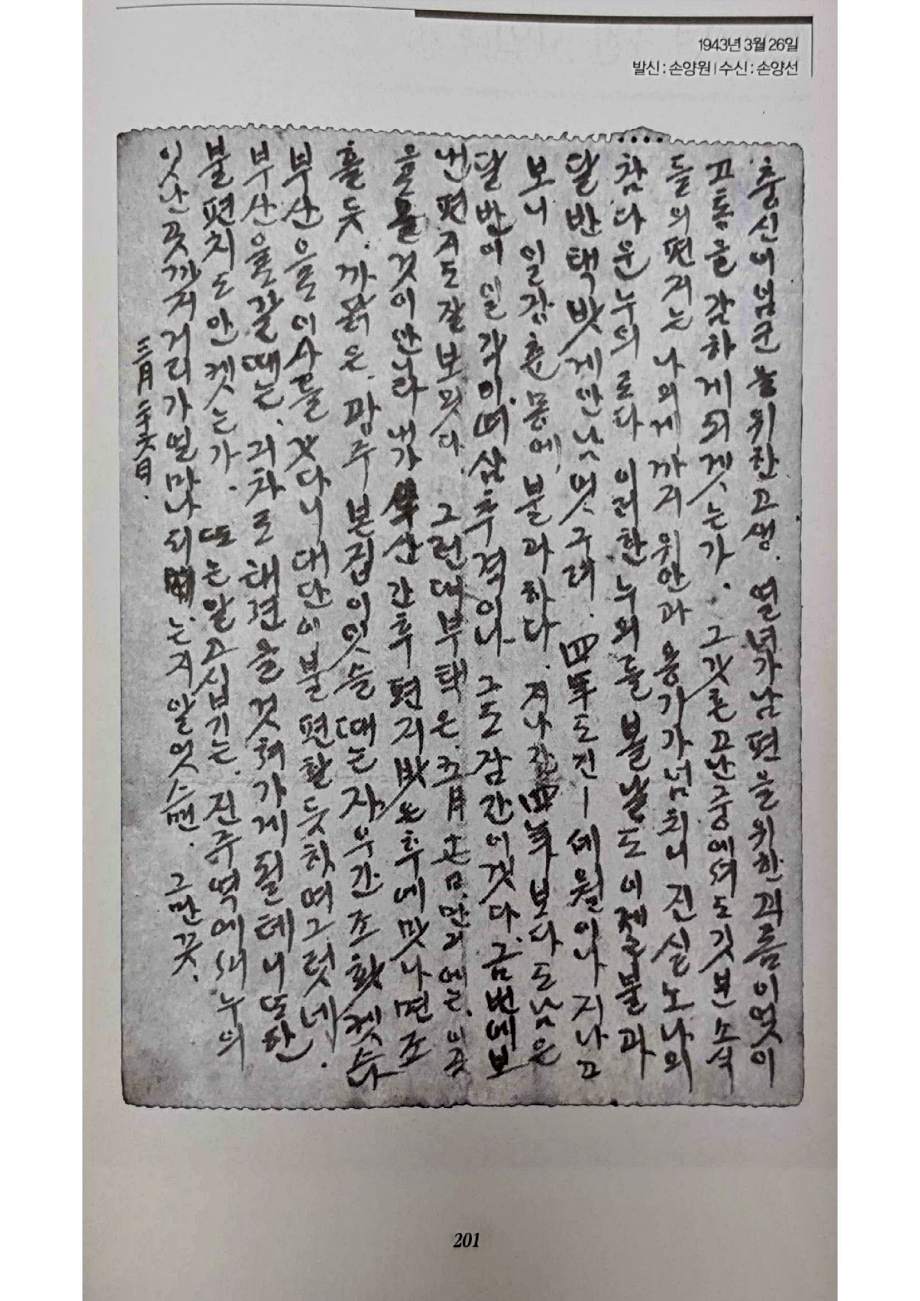 1943년 3월 26일
발신 : 손양원 | 수신 : 손양선
충신이 님군을 위한 고생. 열녀가 남편을 위한 괴롬이 엇이
고통을 감하게 되겟는가. 그갓흔 고난 중에서도 깃븐 소식
들의 편지는 나의게까지 위안과 용기가 넘치니 진실노 나의
참다운 누의로다 이러한 누의들 볼 날도 이제는 불과
달반택밧게 안 남엇구려. 四年도 긴ㅡ세월이나 지나고
보니 일장춘몽에 불과하다. 지나간 四年보다도 남은
달반이 일각이 如삼추 격이나 그도 잠간이겟다. 금번에 보
낸 편지도 잘 보앗다. 그런대 부탁은 五月 十七日 만기에는 이곳
을 올 것이 안니라 내가 산 간 후 편지 밧은 후에 맛나면 조
흘 듯. 까닭은. 광주 본집이 잇슬 때는 자우간 조화켓
부산으로 이사를 갓다니 대단이 불편할 듯 하며 그럿네.
부산으로 갈 때는. 긔차로 대면을 것처가게 될 테니 또한
불편치도 안켓는가. 또는 알고십기는. 진주역에서 누의
잇난 곳까지 거리가 얼마나 되는지 알엇스면. 그만 끗.
三月 二十六日.
201